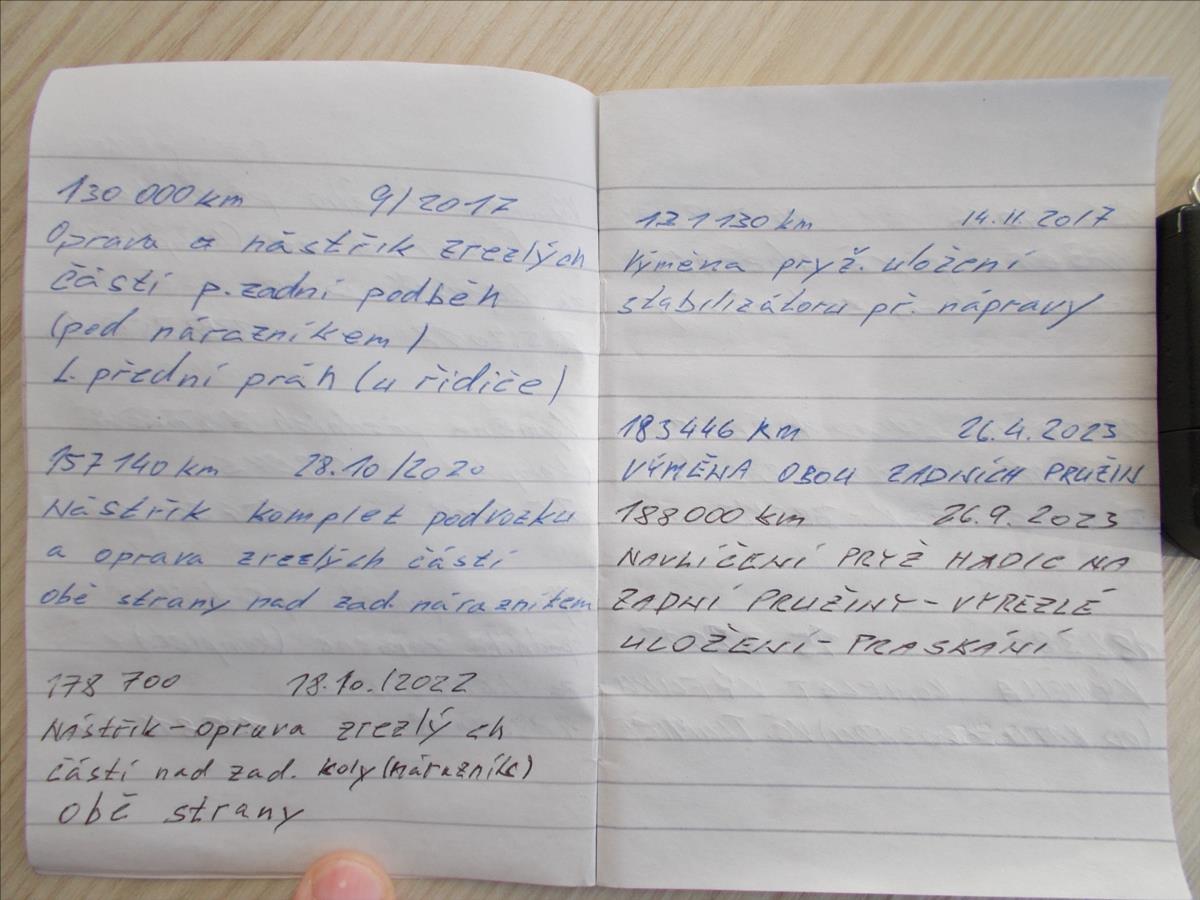 130 000 km 9/2017
Oprava a nástřik zrezlých
částí p. zadní podběh
(pod nárazníkem)
L. přední práh (u řidiče)
157 140 km 28.10/2020
Nástřik komplet podvozku
a oprava zrezlých částí
obě strany nad zad. nárazníkem
178 700 18.10./2022
Nástřik - oprava zrezlých
částí nad zad. koly (nárazník)
obě strany
131 130 km 14.11.2017
Výměna pryž. uložení
stabilizátoru př. nápravy
183446 km 26.4.2023
VÝMĚNA OBOU ZADNÍCH PRUŽIN
188000 km 26.9.2023
NAVLÍČENÍ PRYŽ HADIC NA
ZADNÍ PRUŽINY - VYREZLÉ
ULOŽENÍ - PRASKÁNÍ